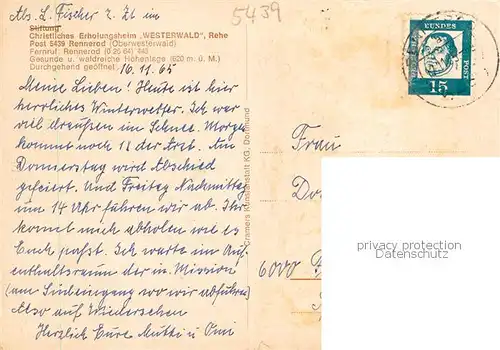 Abs. L. Fischer z. Zt im
5439
Stiftung
Christliches Erholungsheim „WESTERWALD", Rehe
Post 5439 Rennerod (Oberwesterwald)
Fernruf: Rennerod (0 26 64) 448
Gesunde u. waldreiche Höhenlage (620 m. ü. M.)
Durchgehend geöffnet.
16.11.65
Meine Lieben! Heute ist hier
herrliches Winterwetter. Ich war
viel draußen im Schnee. Morgen
kommt noch 11 der Arzt. Am
Donnerstag wird Abschied
gefeiert. Und Freitag Nachmittag
um 14 Uhr führen wir ab. Ihr
kommt mich abholen wie es
Euch paßt. Ich warte im Auf-
enthaltsraum der in. Mission
(am Südeingang wo wir abfuhren
Also auf Wiedersehen
Herzlich Eure Mutti u Omi
Cramers Kunstanstalt KG, Dortmund
DEUTSCHE BUNDESPOST
15
Frau
Do
6000
privacy protection
Datenschutz